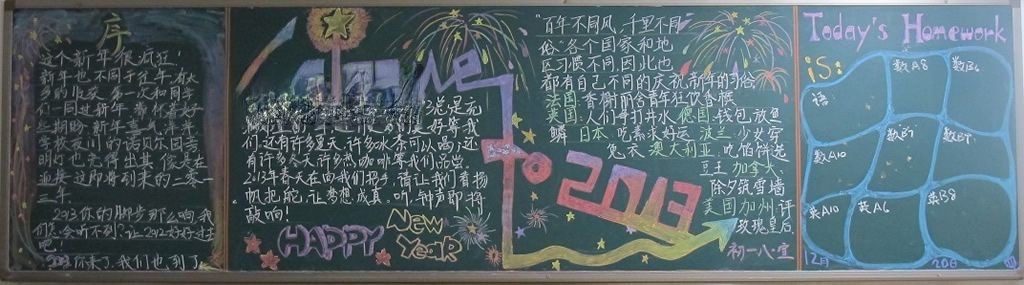 序
这个新年很疯狂!
新年也不同于往年,有太
多的收获,第一次和同学
们一同过新年,带怀着好
学校友川的诺贝尔园芳
迎接这即将到来的二零一
三年。
2013你的脚步那么响,我
们怎会听不到?让2012好好过去
吧!
2013你来了,我们也到了
Welcome
To 2013
们,还有许多夏天,许多水茶可以喝;还
有许多冬天,许多热咖啡等我们品尝。
2013年春天在向我们招手,请让我们有扬
帆把舵,让梦想成真。听,钟声即将
敲响!
HAPPY
NEW
YEAR
"百年不同风,千里不同
俗"各个国家和地
区习惯不同,因此也
都有自己不同的庆祝新年的习俗
法国:香榭丽舍青年狂饮香槟
英国:人们争打井水 德国:钱包放鱼
鳞 日本:吃荞求好运 波兰:少女穿
兔衣 澳大利亚:吃馅饼选
豆王 加拿大:
除夕筑雪墙
美国加州:评
玫瑰皇后
初一八·宣
Today's Homework
is:
语
数A8
数B6
数A10
数B7
数B9
英A10
英A6
英B8
12月
20日